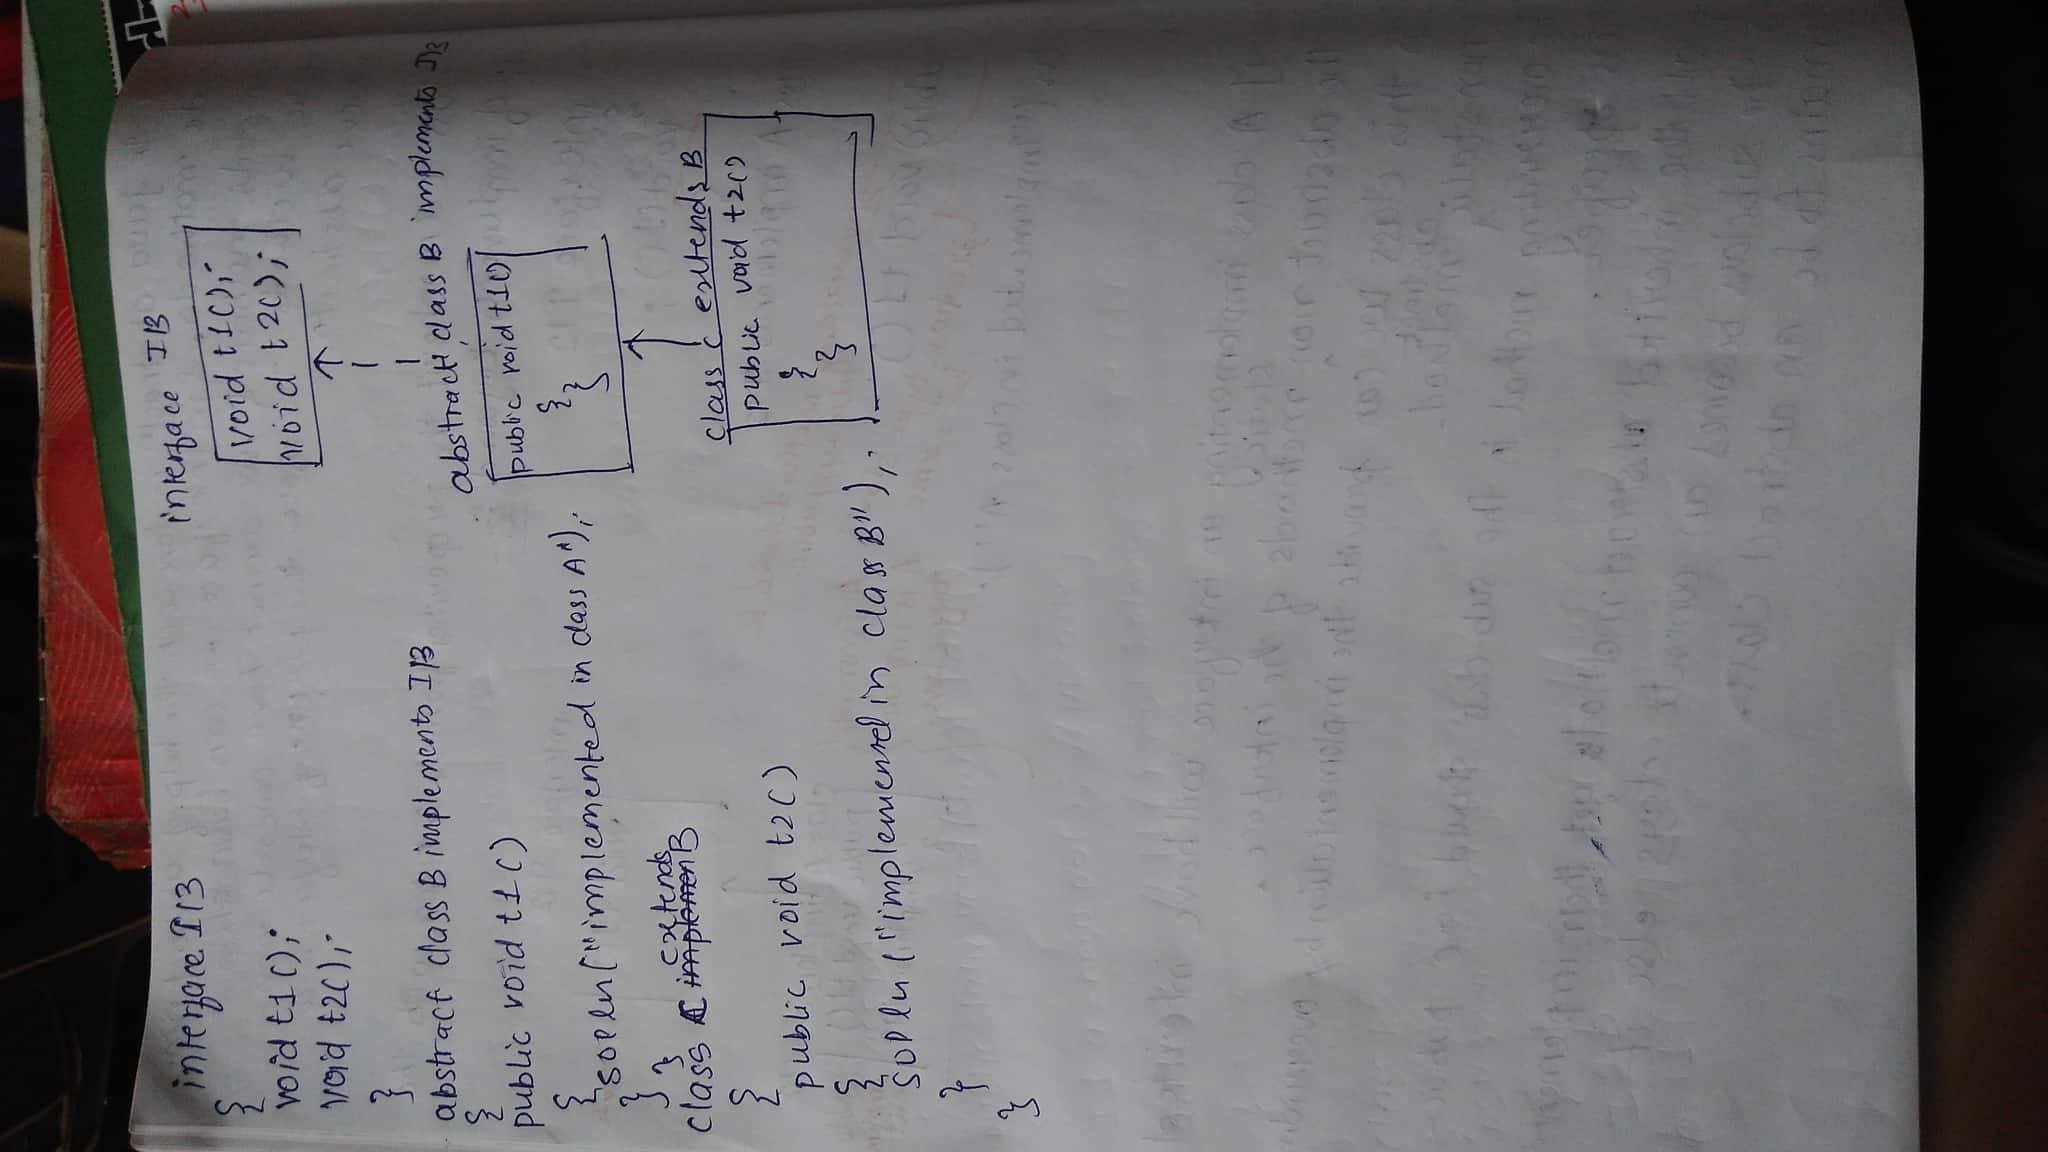 interface IB
{
void t1();
void t2();
}
abstract class B implements IB
{
public void t1()
{
sopln("implemented in class A");
} }
class C extends B
{
public void t2()
{
sopln("implemented in class B");
}
}
interface IB
void t1();
void t2();
abstract class B implements IB
public void t1()
{
}
class C extends B
public void t2()
{
}